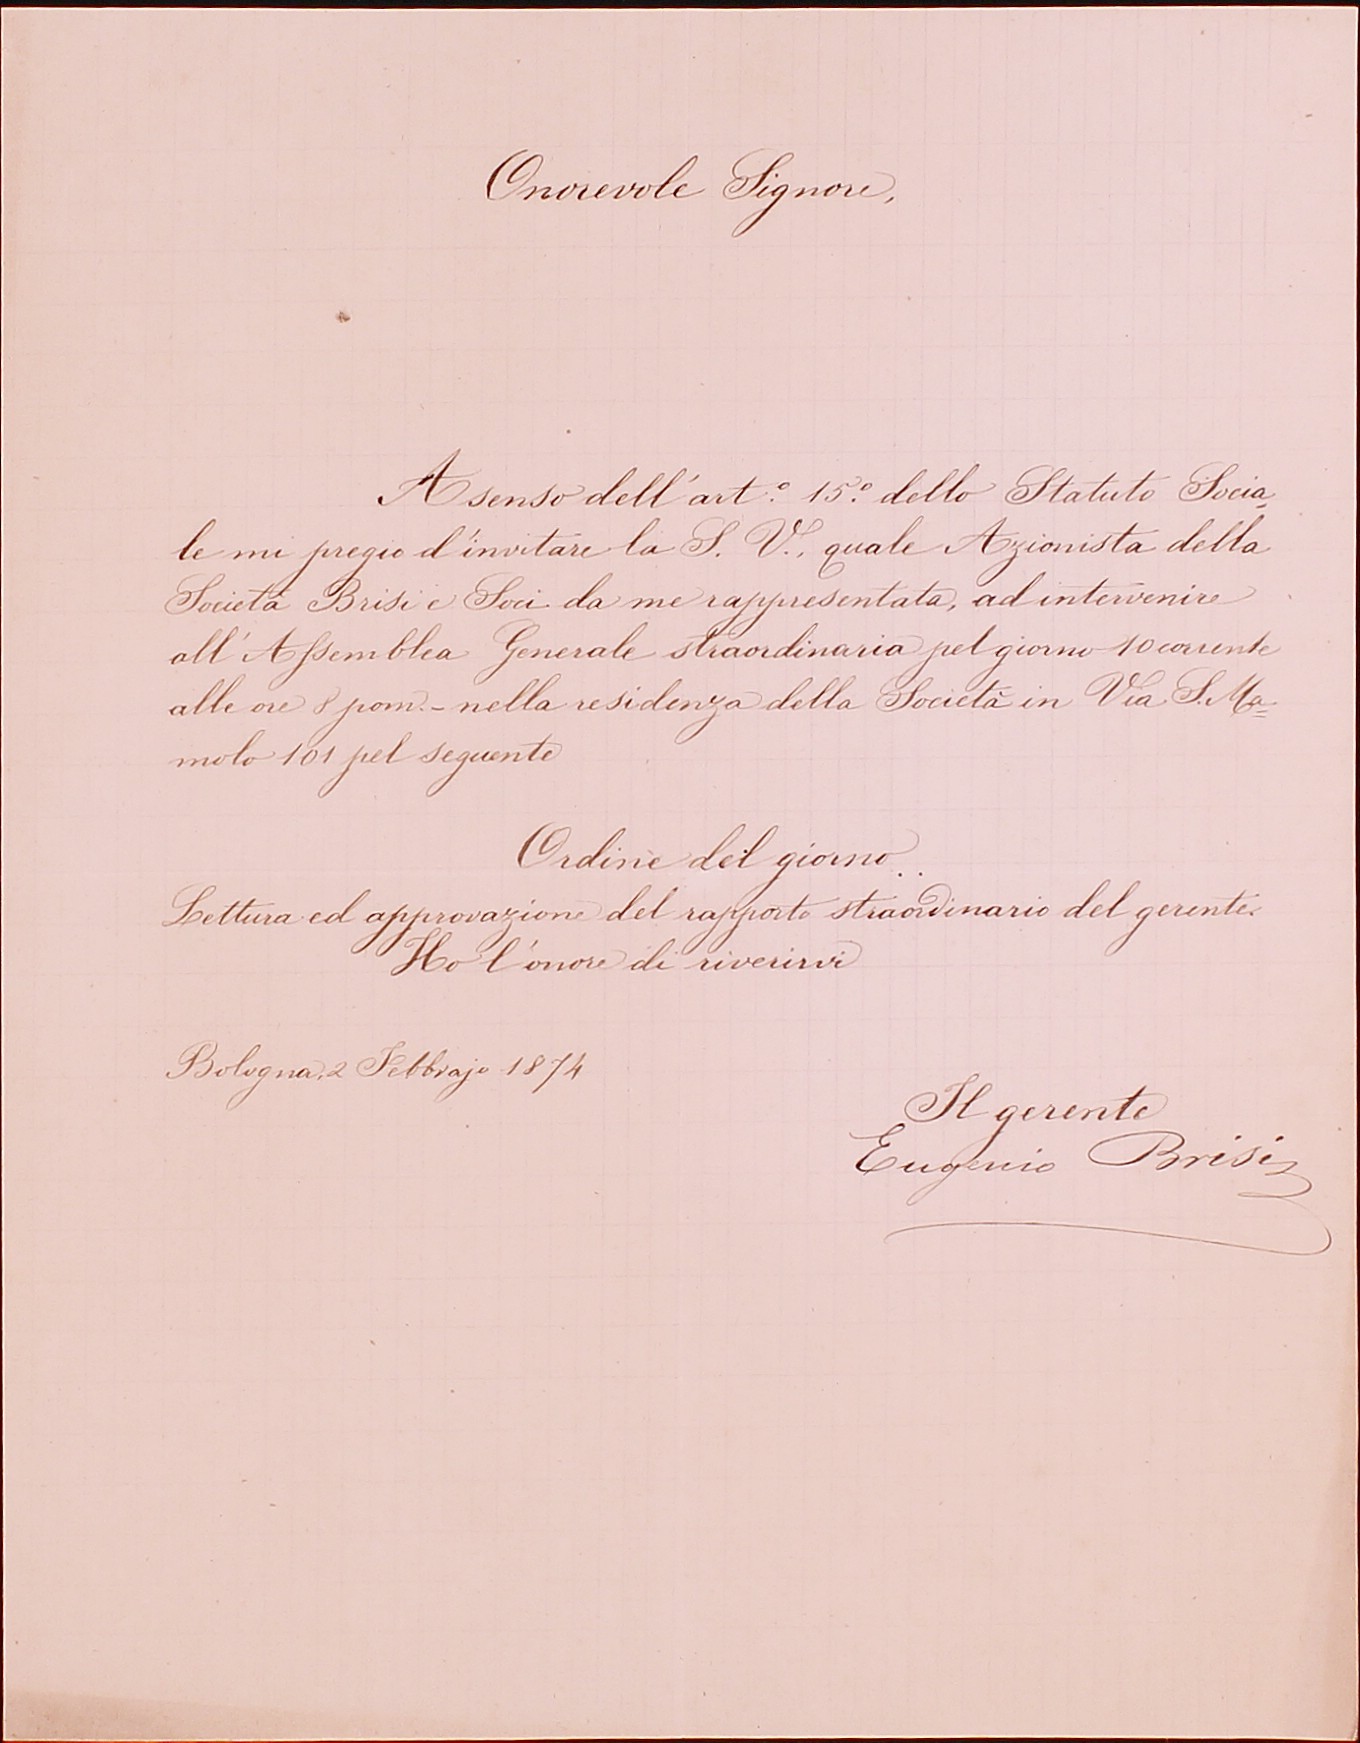 Onorevole Signore,
A senso dell'art.º 15.º dello Statuto Socia=
le mi pregio d'invitare la S. V., quale Azionista della
Società Brisi e Soci da me rappresentata, ad intervenire
all'Assemblea Generale straordinaria pel giorno 10 corrente
alle ore 8 pom. - nella residenza della Società in Via S. Ma=
molo 101 pel seguente
Ordine del giorno..
Lettura ed approvazione del rapporto straordinario del gerente.
Ho l'onore di riverirvi
Bologna, 2 Febbrajo 1874
Il gerente
Eugenio Brisi